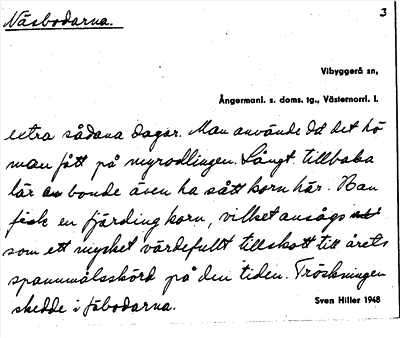 Näsbodarna.
3
Vibyggerå sn,
Ångermanl. s. doms. tg., Västernorrl. l.
extra sådana dagar. Man använde då det hö
man fått på myrodlingen. Långt tillbaka
lär en bonde även ha sått korn här. Han
fick en fjärding korn, vilket ansågs
som ett mycket värdefullt tillskott till årets
spannmålsskörd på den tiden. Tröskningen
skedde i fäbodarna.
Sven Hiller 1948